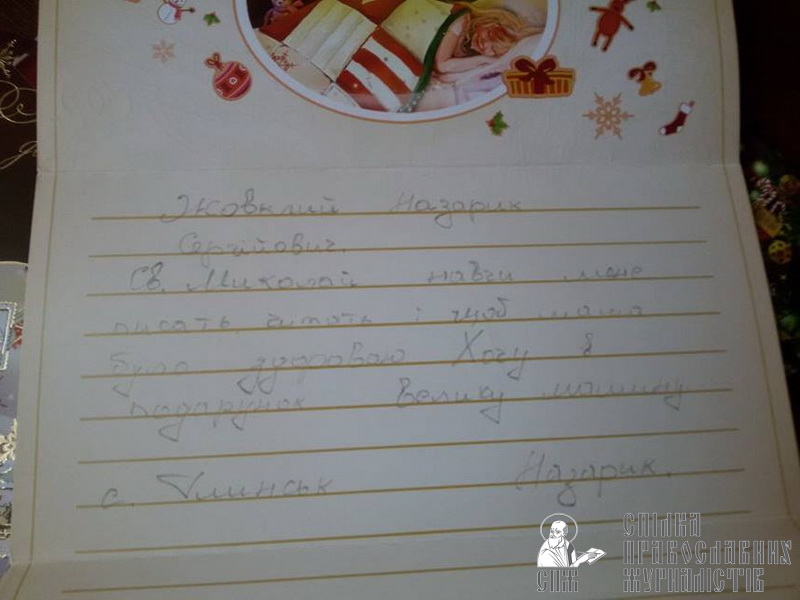 Яковклий Назарик
Сергійович.
Св. Миколай навчи мене
писать, читать і щоб мама
була здоровою Хочу в
подарунок велику машину
с. Глинськ Назарик.
СПЖ
СПІЛКА
ПРАВОСЛАВНИХ
ЖУРНАЛІСТІВ